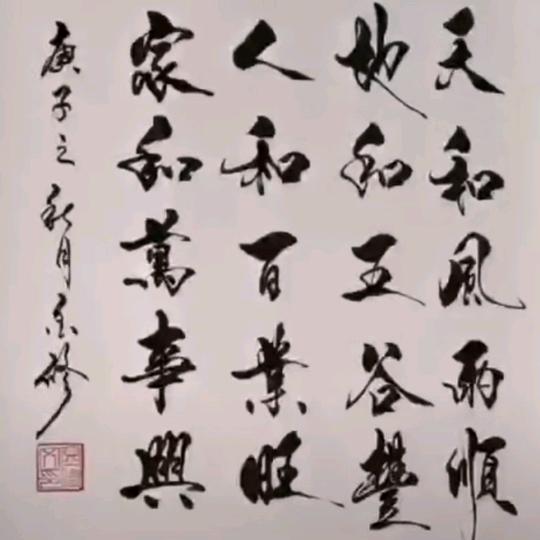 天和風雨順
地和五谷豐
人和百業旺
家和萬事興
庚子之秋月